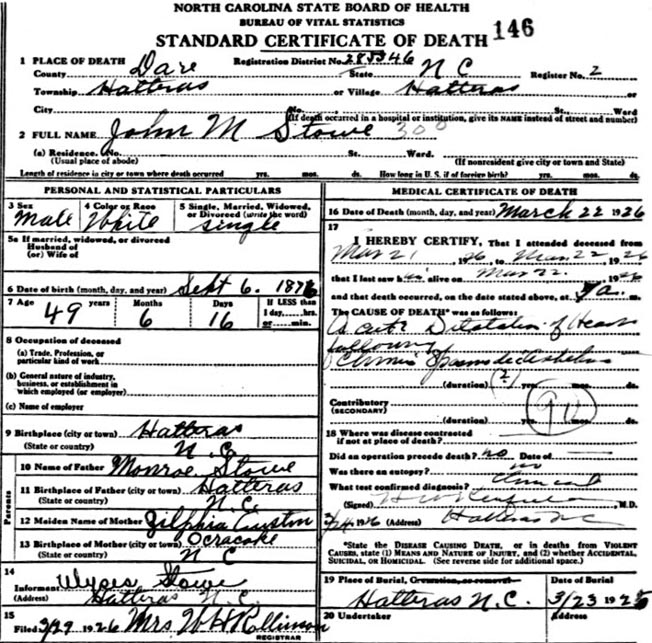 NORTH CAROLINA STATE BOARD OF HEALTH
BUREAU OF VITAL STATISTICS
STANDARD CERTIFICATE OF DEATH 146
1 PLACE OF DEATH Registration District No.
County Dare State N C Register No. 2
Township Hatteras or Village Hatteras or
City No. St., Ward
(If death occurred in a hospital or institution, give its NAME instead of street and number)
2 FULL NAME John M Stowe 300
(a) Residence. No. St. Ward.
(Usual place of abode) (If nonresident give city or town and State)
Length of residence in city or town where death occurred yrs. mos. ds. How long in U. S. if of foreign birth? yrs. mos. ds.
PERSONAL AND STATISTICAL PARTICULARS
3 Sex 4 Color or Race 5 Single, Married, Widowed, or Divorced (write the word)
Male White Single
5a If married, widowed, or divorced
Husband of
(or) Wife of
6 Date of birth (month, day, and year) Sept 6. 1876
7 Age 49 years 6 Months 16 Days If LESS than
1 day, hrs.
or min.
8 Occupation of deceased
(a) Trade, Profession, or
particular kind of work
(b) General nature of industry,
business, or establishment in
which employed (or employer)
(c) Name of employer
9 Birthplace (city or town) Hatteras
(State or country) N.C.
Parents
10 Name of Father Monroe Stowe
11 Birthplace of Father (city or town) Hatteras
(State or country) N.C.
12 Maiden Name of Mother Zilphia Austin
13 Birthplace of Mother (city or town) Ocracoke
(State or country) N C
14
Informant Ulyses Stowe
(Address) Hatteras N C
15
Filed 3/29 1926 Mrs W H Rollinson
REGISTRAR
MEDICAL CERTIFICATE OF DEATH
16 Date of Death (month, day, and year) March 22 1926
17
I HEREBY CERTIFY, That I attended deceased from
Mar 21 1926 to Mar 22 1926
that I last saw h alive on Mar 22. 1926
and that death occurred, on the date stated above, at a. m.
The CAUSE OF DEATH* was as follows:
Acute Dilatation of Heart
following
(duration) (?) yrs. mos. ds.
Contributory
(SECONDARY)
(duration) yrs. mos. ds.
18 Where was disease contracted
if not at place of death?
Did an operation precede death? no Date of
Was there an autopsy? no
What test confirmed diagnosis?
(Signed) M.D.
1926 (Address) Hatteras N C
*State the DISEASE CAUSING DEATH, or in deaths from VIOLENT
CAUSES, state (1) MEANS AND NATURE OF INJURY, and (2) whether ACCIDENTAL,
SUICIDAL, OR HOMICIDAL. (See reverse side for additional space.)
19 Place of Burial, Cremation, or removal Date of Burial
Hatteras N.C. 3/23 1926
20 Undertaker Address